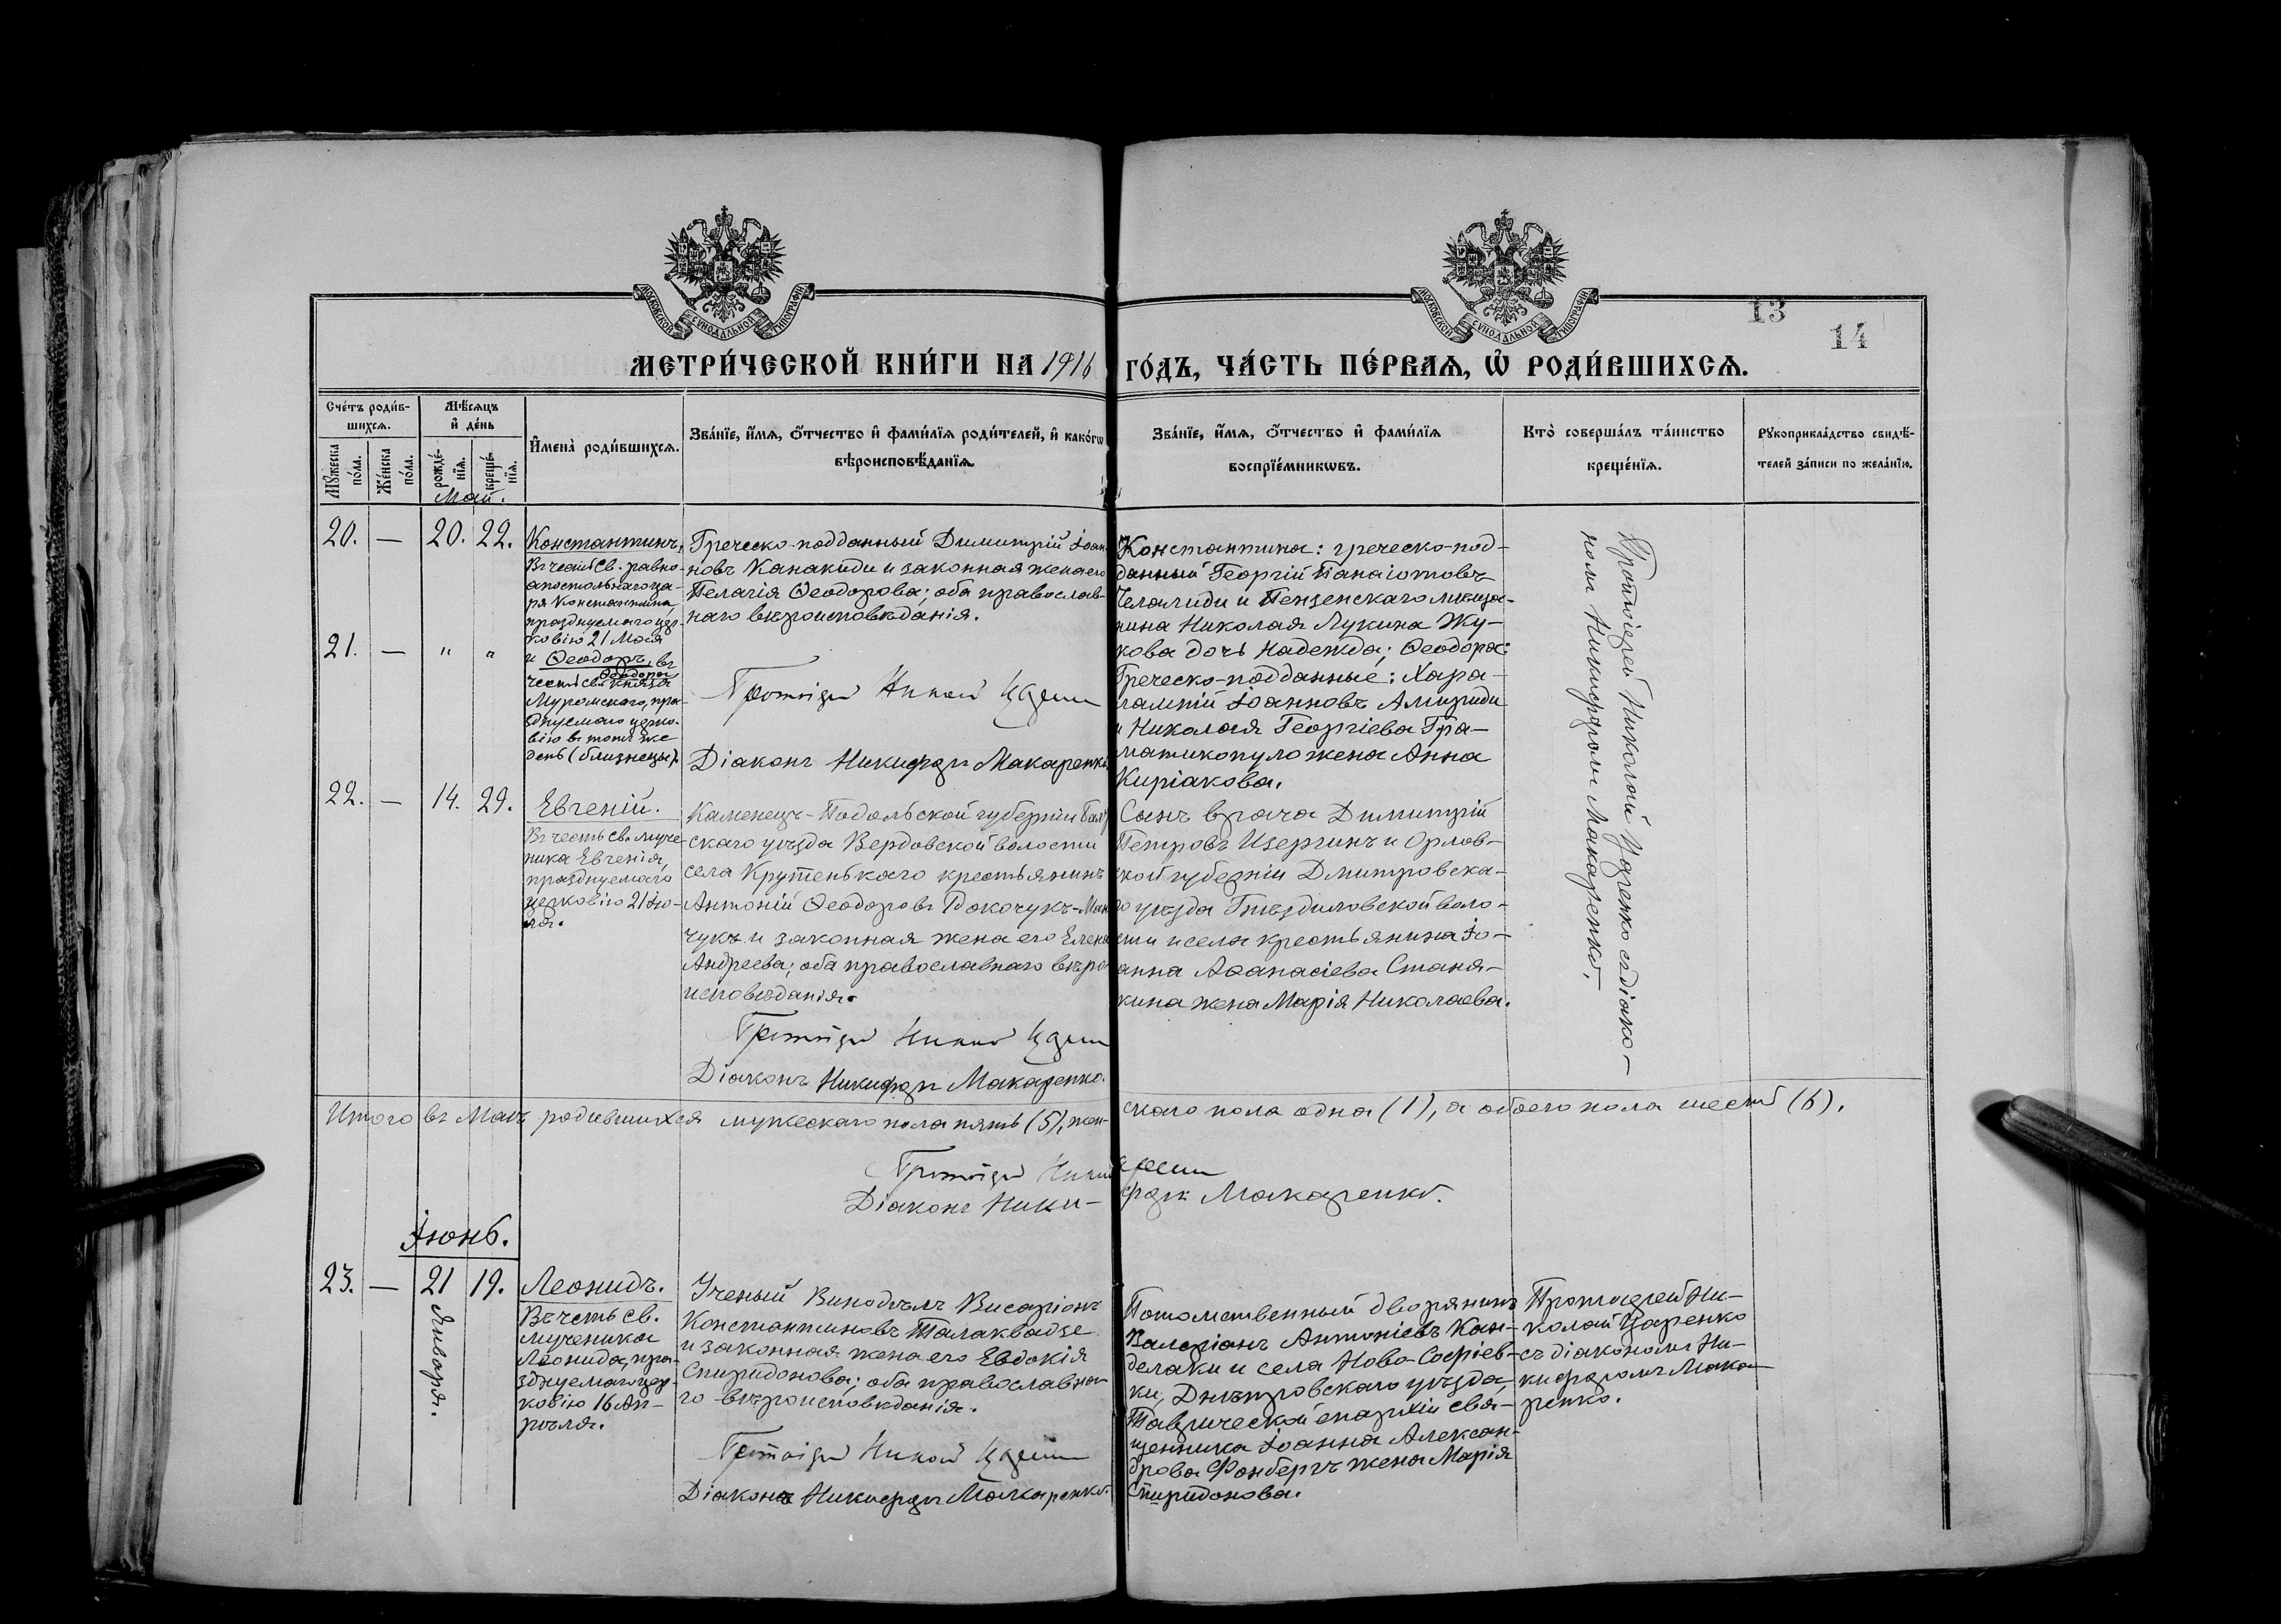 МОСКОВСКОЙ СѴНОДАЛЬНОЙ ТИПОГРАФІИ
МОСКОВСКОЙ СѴНОДАЛЬНОЙ ТИПОГРАФІИ
13
14
МЕТРИ́ЧЕСКОЙ КНИ́ГИ НА 1916 ГО́ДЪ, ЧА́СТЬ ПЕ́РВАѦ, Ѽ РОДИ́ВШИХСѦ.
Сче́тъ роди́в-
шихсѧ.
Мꙋ́жеска
по́ла.
Же́нска
по́ла.
Мѣ́сѧцъ
и҆ де́нь
рожде́-
нїѧ.
креще́-
нїѧ.
И҆мена̀ роди́вшихсѧ.
Зва́нїе, и҆́мѧ, ѻ҆́тчество и҆ фами́лїѧ роди́телей, и҆ како́гѡ
вѣроисповѣ́данїѧ.
Зва́нїе, и҆́мѧ, ѻ҆́тчество и҆ фами́лїѧ
воспрїе́мникѡвъ.
Кто̀ соверша́лъ та́инство
креще́нїѧ.
Рꙋкоприкла́дство свидѣ́-
телей за́писи по жела́нїю.
Май.
20. — 20. 22.
Константинъ,
Въ честь Св. равно-
апостольнаго ца-
ря Константина,
празднуемаго цер-
ковію 21 Мая
21. — " "
и Ѳеодоръ, въ
честь св. князя Ѳеодора
Муромскаго, пра-
зднуемаго церко-
вію въ тотъ же
день (близнецы).
Греческо-подданный Димитрій Іоан-
новъ Канакиди и законная жена его
Пелагія Ѳеодорова; оба православ-
наго вѣроисповѣданія.
Протоіерей Николай Царенко
Діаконъ Никифоръ Макаренко.
Константина: греческо-под-
данный Георгій Панаіотовъ
Челалиди и Пензенскаго мѣща-
нина Николая Лукина Жу-
кова дочь Надежда; Ѳеодора:
Греческо-подданные: Хара-
лампій Іоанновъ Амириди
и Николая Георгіева Гра-
матикопуло жена Анна
Киріакова.
Протоіерей Николай Царенко съ діако-
номъ Никифоромъ Макаренко.
22. — 14. 29.
Евгеній.
Въ честь Св. муче-
ника Евгенія,
празднуемаго
церковію 21 Ян-
ря.
Каменецъ-Подольской губерніи Балт-
скаго уѣзда Вердовской волости
села Крутенькаго крестьянинъ
Антоній Ѳеодоровъ
чукъ и законная жена его Елена
Андреева; оба православнаго вѣро-
исповѣданія.
Протоіерей Николай Царенко
Діаконъ Никифоръ Макаренко.
Сынъ врача Димитрій
Петровъ Изергинъ и Орлов-
ской губерніи Дмитровска-
го уѣзда Гнѣздиловской воло-
сти и села крестьянина Іо-
анна Аѳанасіева Станя-
кина жена Марія Николаева.
Итого въ Маѣ родившихся мужескаго пола пять (5), жен-
скаго пола одна (1), а обоего пола шесть (6).
Протоіерей Николай Царенко
Діаконъ Ники-
форъ Макаренко.
Іюнь.
23. — 21 19.
Января.
Леонидъ.
Въ честь св.
мученика
Леонида, пра-
зднуемаго цер-
ковію 16 Ап-
рѣля.
Ученый Винодѣлъ Висаріонъ
Константиновъ Талаквадзе
и законная жена его Евдокія
Спиридонова; оба православна-
го вѣроисповѣданія.
Протоіерей Николай Царенко
Діаконъ Никифоръ Макаренко.
Потомственный дворянинъ
Валеріанъ Антоніевъ Кан-
делаки и села Ново-Софіев-
ки, Днѣпровскаго уѣзда,
Таврической епархіи свя-
щенника Іоанна Алексан-
дрова Фонбергъ жена Марія
Спиридонова.
Протоіерей Ни-
колай Царенко
съ діакономъ Ни-
кифоромъ Мака-
ренко.